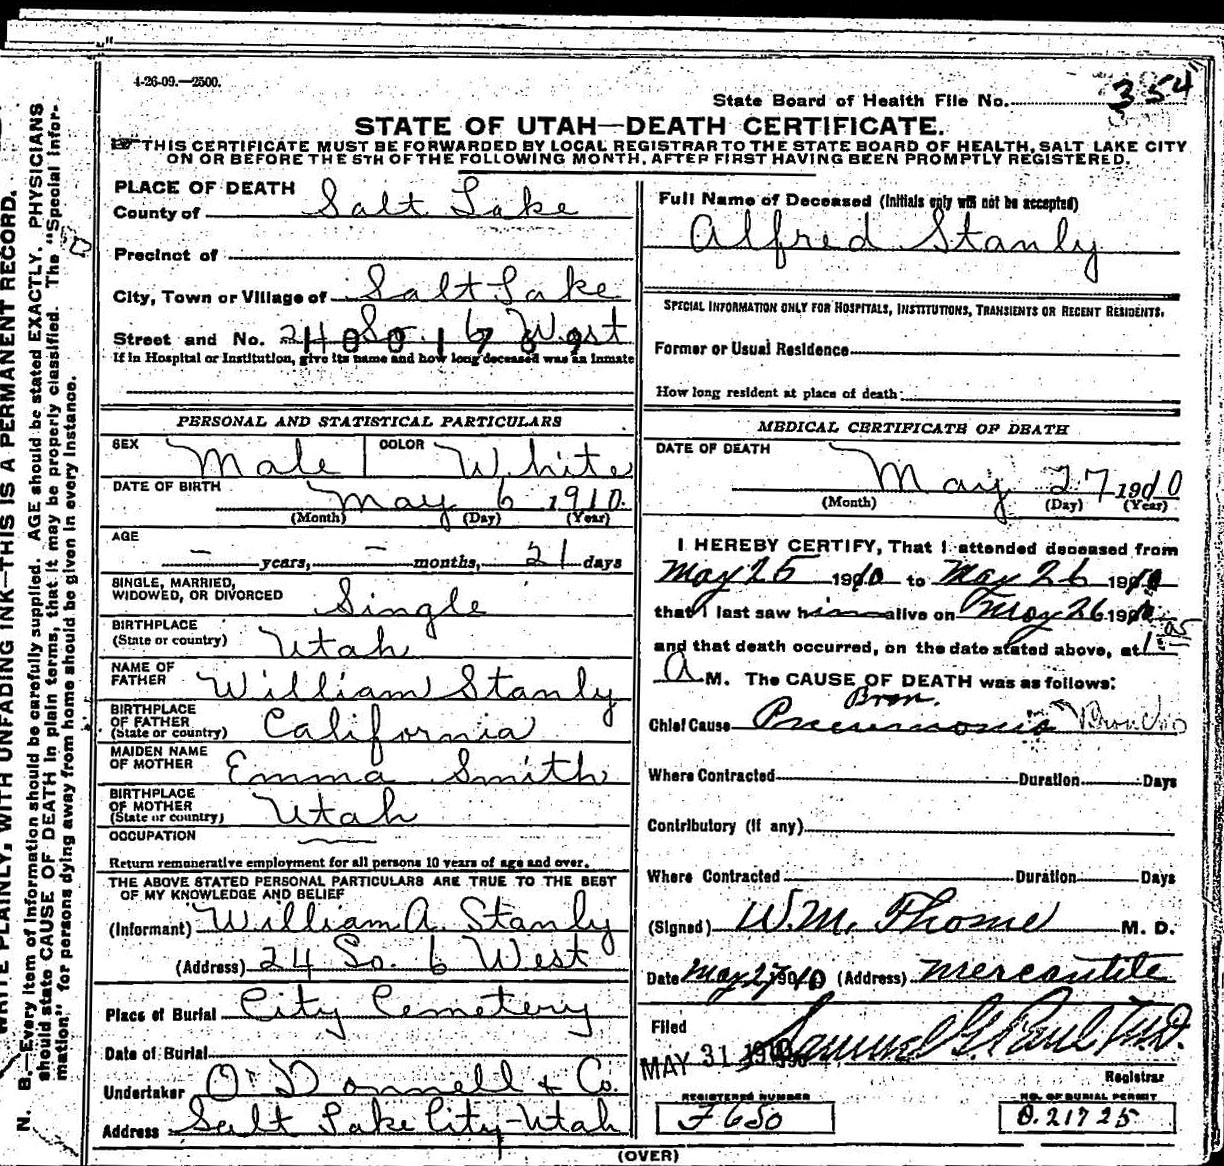 4-26-09.—2500.
State Board of Health File No. 354
STATE OF UTAH—DEATH CERTIFICATE.
THIS CERTIFICATE MUST BE FORWARDED BY LOCAL REGISTRAR TO THE STATE BOARD OF HEALTH, SALT LAKE CITY
ON OR BEFORE THE 5TH OF THE FOLLOWING MONTH, AFTER FIRST HAVING BEEN PROMPTLY REGISTERED.
WRITE PLAINLY, WITH UNFADING INK—THIS IS A PERMANENT RECORD.
N. B.—Every item of information should be carefully supplied. AGE should be stated EXACTLY. PHYSICIANS
should state CAUSE OF DEATH in plain terms, that it may be properly classified. The "Special Infor-
mation" for persons dying away from home should be given in every instance.
PLACE OF DEATH
County of Salt Lake
Precinct of
City, Town or Village of Salt Lake
Street and No. 24 So. 6 West
If in Hospital or Institution, give its name and how long deceased was an inmate
PERSONAL AND STATISTICAL PARTICULARS
SEX Male COLOR White
DATE OF BIRTH May 6 1910.
(Month) (Day) (Year)
AGE
— years, — months, 21 days
SINGLE, MARRIED,
WIDOWED, OR DIVORCED Single
BIRTHPLACE
(State or country) Utah
NAME OF
FATHER William Stanly
BIRTHPLACE
OF FATHER
(State or country) California
MAIDEN NAME
OF MOTHER Emma Smith
BIRTHPLACE
OF MOTHER
(State or country) Utah
OCCUPATION
Return remunerative employment for all persons 10 years of age and over.
THE ABOVE STATED PERSONAL PARTICULARS ARE TRUE TO THE BEST
OF MY KNOWLEDGE AND BELIEF
(Informant) William A. Stanly
(Address) 24 So. 6 West
Place of Burial City Cemetery
Date of Burial
Undertaker O'Donnell & Co.
Address Salt Lake City-Utah
Full Name of Deceased (Initials only will not be accepted)
Alfred Stanly
SPECIAL INFORMATION ONLY FOR HOSPITALS, INSTITUTIONS, TRANSIENTS OR RECENT RESIDENTS.
Former or Usual Residence
How long resident at place of death:
MEDICAL CERTIFICATE OF DEATH
DATE OF DEATH
May 27 1910
(Month) (Day) (Year)
I HEREBY CERTIFY, That I attended deceased from
May 25 1910 to May 26 1910
that I last saw him alive on May 26 1910
and that death occurred, on the date stated above, at 1 05
A M. The CAUSE OF DEATH was as follows:
Bron.
Chief Cause Pneumonia Broncho
Where Contracted Duration Days
Contributory (if any)
Where Contracted Duration Days
(Signed) W.M. Thome M. D.
Date May 27 1910 (Address) Mercantile
Filed
MAY 31 1910 Samuel G. Paul M.D.
Registrar
REGISTERED NUMBER
F 650
NO. OF BURIAL PERMIT
O.21725
(OVER)